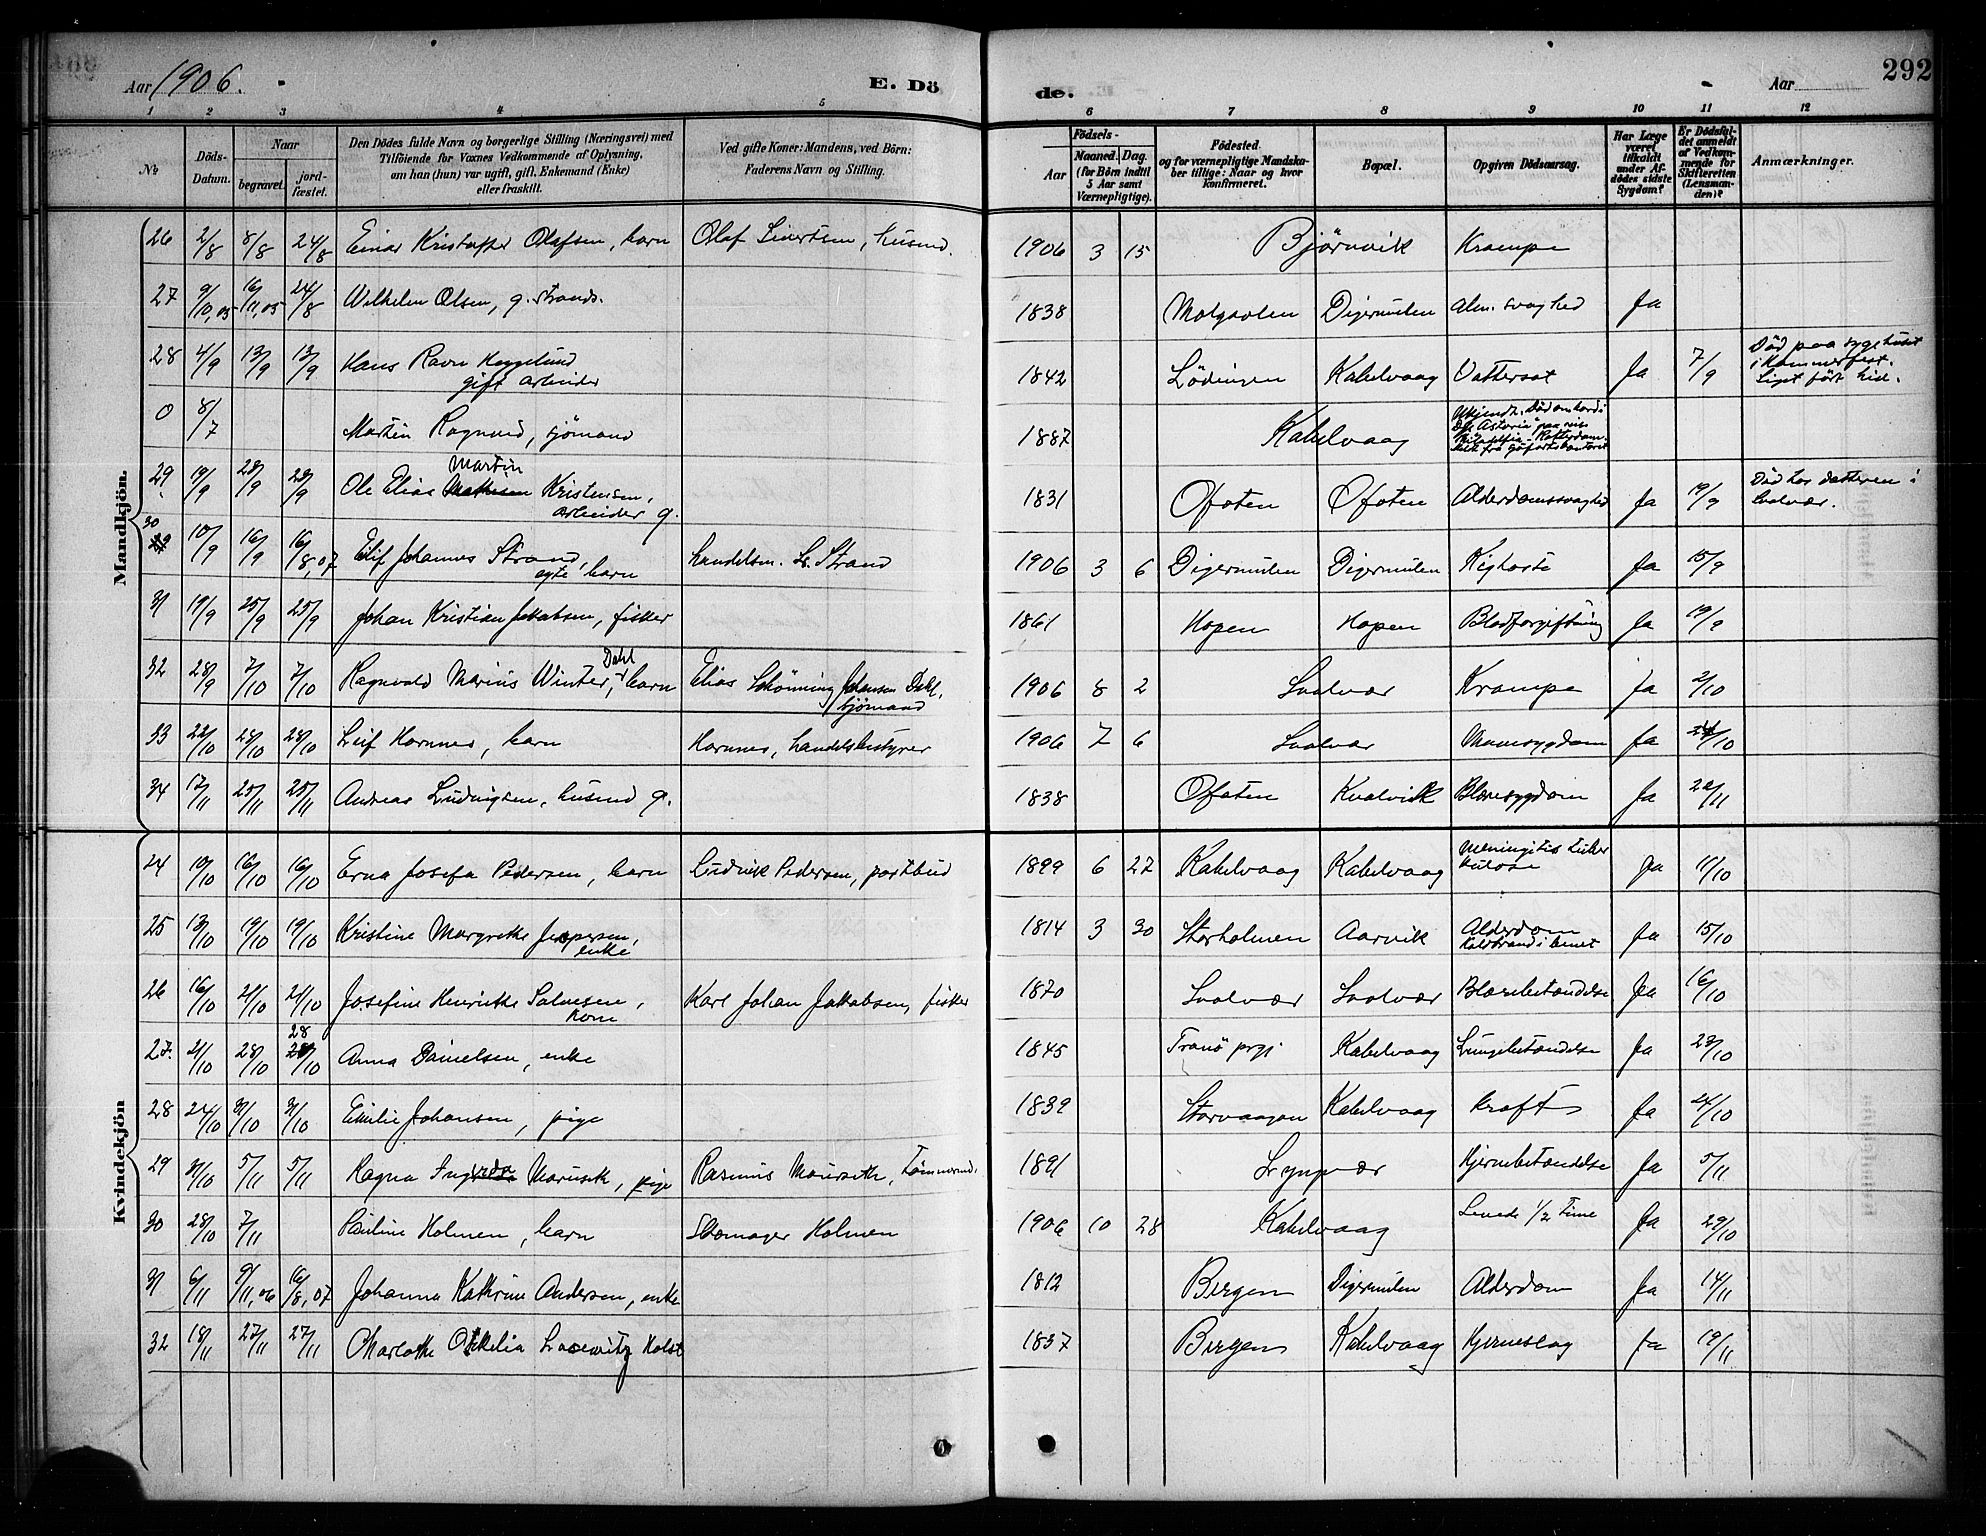 Aar 1906.
E. Dö
de.
Aar
292
1 2 3 4 5 6 7 8 9 10 11 12
No
Döds-
Datum.
Naar
begravet.
jord-
fæstet.
Den Dödes fulde Navn og borgerlige Stilling (Næringsvei) med
Tilföiende for Voxnes Vedkommende af Oplysning,
om han (hun) var ugift, gift, Enkemand (Enke)
eller fraskilt.
Ved gifte Koner: Mandens, ved Börn:
Faderens Navn og Stilling.
Födsels-
Aar
Maaned. Dag.
(for Börn indtil
5 Aar samt
Værnepligtige).
Födested
og for værnepligtige Mandska-
ber tillige: Naar og hvor
konfirmeret.
Bopæl.
Opgiven Dödsaarsag.
Har Læge
været
tilkaldt
under Af-
dödes sidste
Sygdom?
Er Dödsfal-
det anmeldt
af Vedkom-
mende for
Skifteretten
(Lensman-
den)?
Anmærkninger.
Mandkjön.
26 2/8 8/8 24/8 Einar Kristoffer Olafsen, barn Olaf Sivertsen, husmd. 1906 3 15 Bjørnvik Krampe
27 9/10,05 16/11,05 24/8 Wilhelm Olsen, g. strands. 1838 Molgavlen Digermulen Alm. svaghed Ja
28 4/9 13/9 13/9 Hans Ravn Heggelund
gift arbeider 1842 Lödingen Kabelvaag Vattersot Ja 7/9 Död paa sygehuset
i Hammerfest.
Liget fört hid.
0 8/7 Martin Ragnvd, sjömand 1887 Kabelvaag Ukjendt. Död ombord i
D/S "Astoria" paa reise
Philadelphia - Rotterdam.
29. 19/9 28/9 28/9 Ole Elias Martin Kristensen,
arbeider g. 1831 Ofoten Ofoten Alderdomssvaghed Ja 19/9 Död hos datteren i
Svolvær.
30 10/9 16/9 16/8,07 Elif Johannes Strand,
egte barn handelsm. L. Strand 1906 3 6 Digermulen Digermulen Kighoste Ja 15/9
31 19/9 25/9 25/9 Johan Kristian Jakobsen, fisker 1861 Hopen Hopen Blodforgiftning Ja 19/9
32 28/9 7/10 7/10 Ragnvald Marius Winter Dahl, barn Elias Schönning Johansen Dahl,
sjömand 1906 8 2 Svolvær Krampe ja 2/10
33 22/10 28/10 28/10 Leif Hornnes, barn Hornnes, handelsbestyrer 1906 7 6 Svolvær Mavesygdom Ja 24/10
34 17/11 25/11 25/11 Andreas Ludvigsen, husmd g. 1838 Ofoten Kvalvik Blæresygdom Ja 22/11
Kvindekjön
24 10/10 16/10 16/10 Erna Josefa Pedersen, barn Ludvik Pedersen, postbud 1899 6 27 Kabelvaag Kabelvaag Meningitis tuber
kulose Ja 11/10
25 13/10 19/10 19/10 Kristine Margrethe Jespersen,
enke 1814 3 30 Storholmen Aarvik Alderdom
Koldbrand i benet Ja 15/10
26 16/10 21/10 21/10 Josefine Henriette Salvesen,
kone Karl Johan Jakobsen, fisker 1870 Svolvær Svolvær Blærebetændelse Ja 16/10
27. 21/10 28/10 28/10 Anna Danielsen, enke 1845 Tranö prgj Kabelvaag Lungebetændelse Ja 23/10
28 24/10 31/10 31/10 Emilie Johansen, pige 1839 Storvaagan Kabelvaag Kræft Ja 24/10
29 31/10 5/11 5/11 Ragna Maruseth, pige Rasmus Mauseth, Tömmermd. 1891 Lyngvær Hjernebetændelse Ja 5/11
30 28/10 7/11 Pauline Holmen, barn Skomager Holmen 1906 10 28 Kabelvaag Levede 1/2 Time Ja 29/10
31 6/11 9/11,06 16/8,07 Johanna Kathrine Andersen, enke 1812 Bergen Digermulen Alderdom Ja 14/11
32 18/11 27/11 27/11 Charlotte Othelia Holst 1837 Bergen Kabelvaag Hjerneslag Ja 19/11